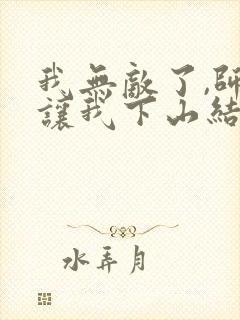 我無敵了,師
讓我下山結
水弄月